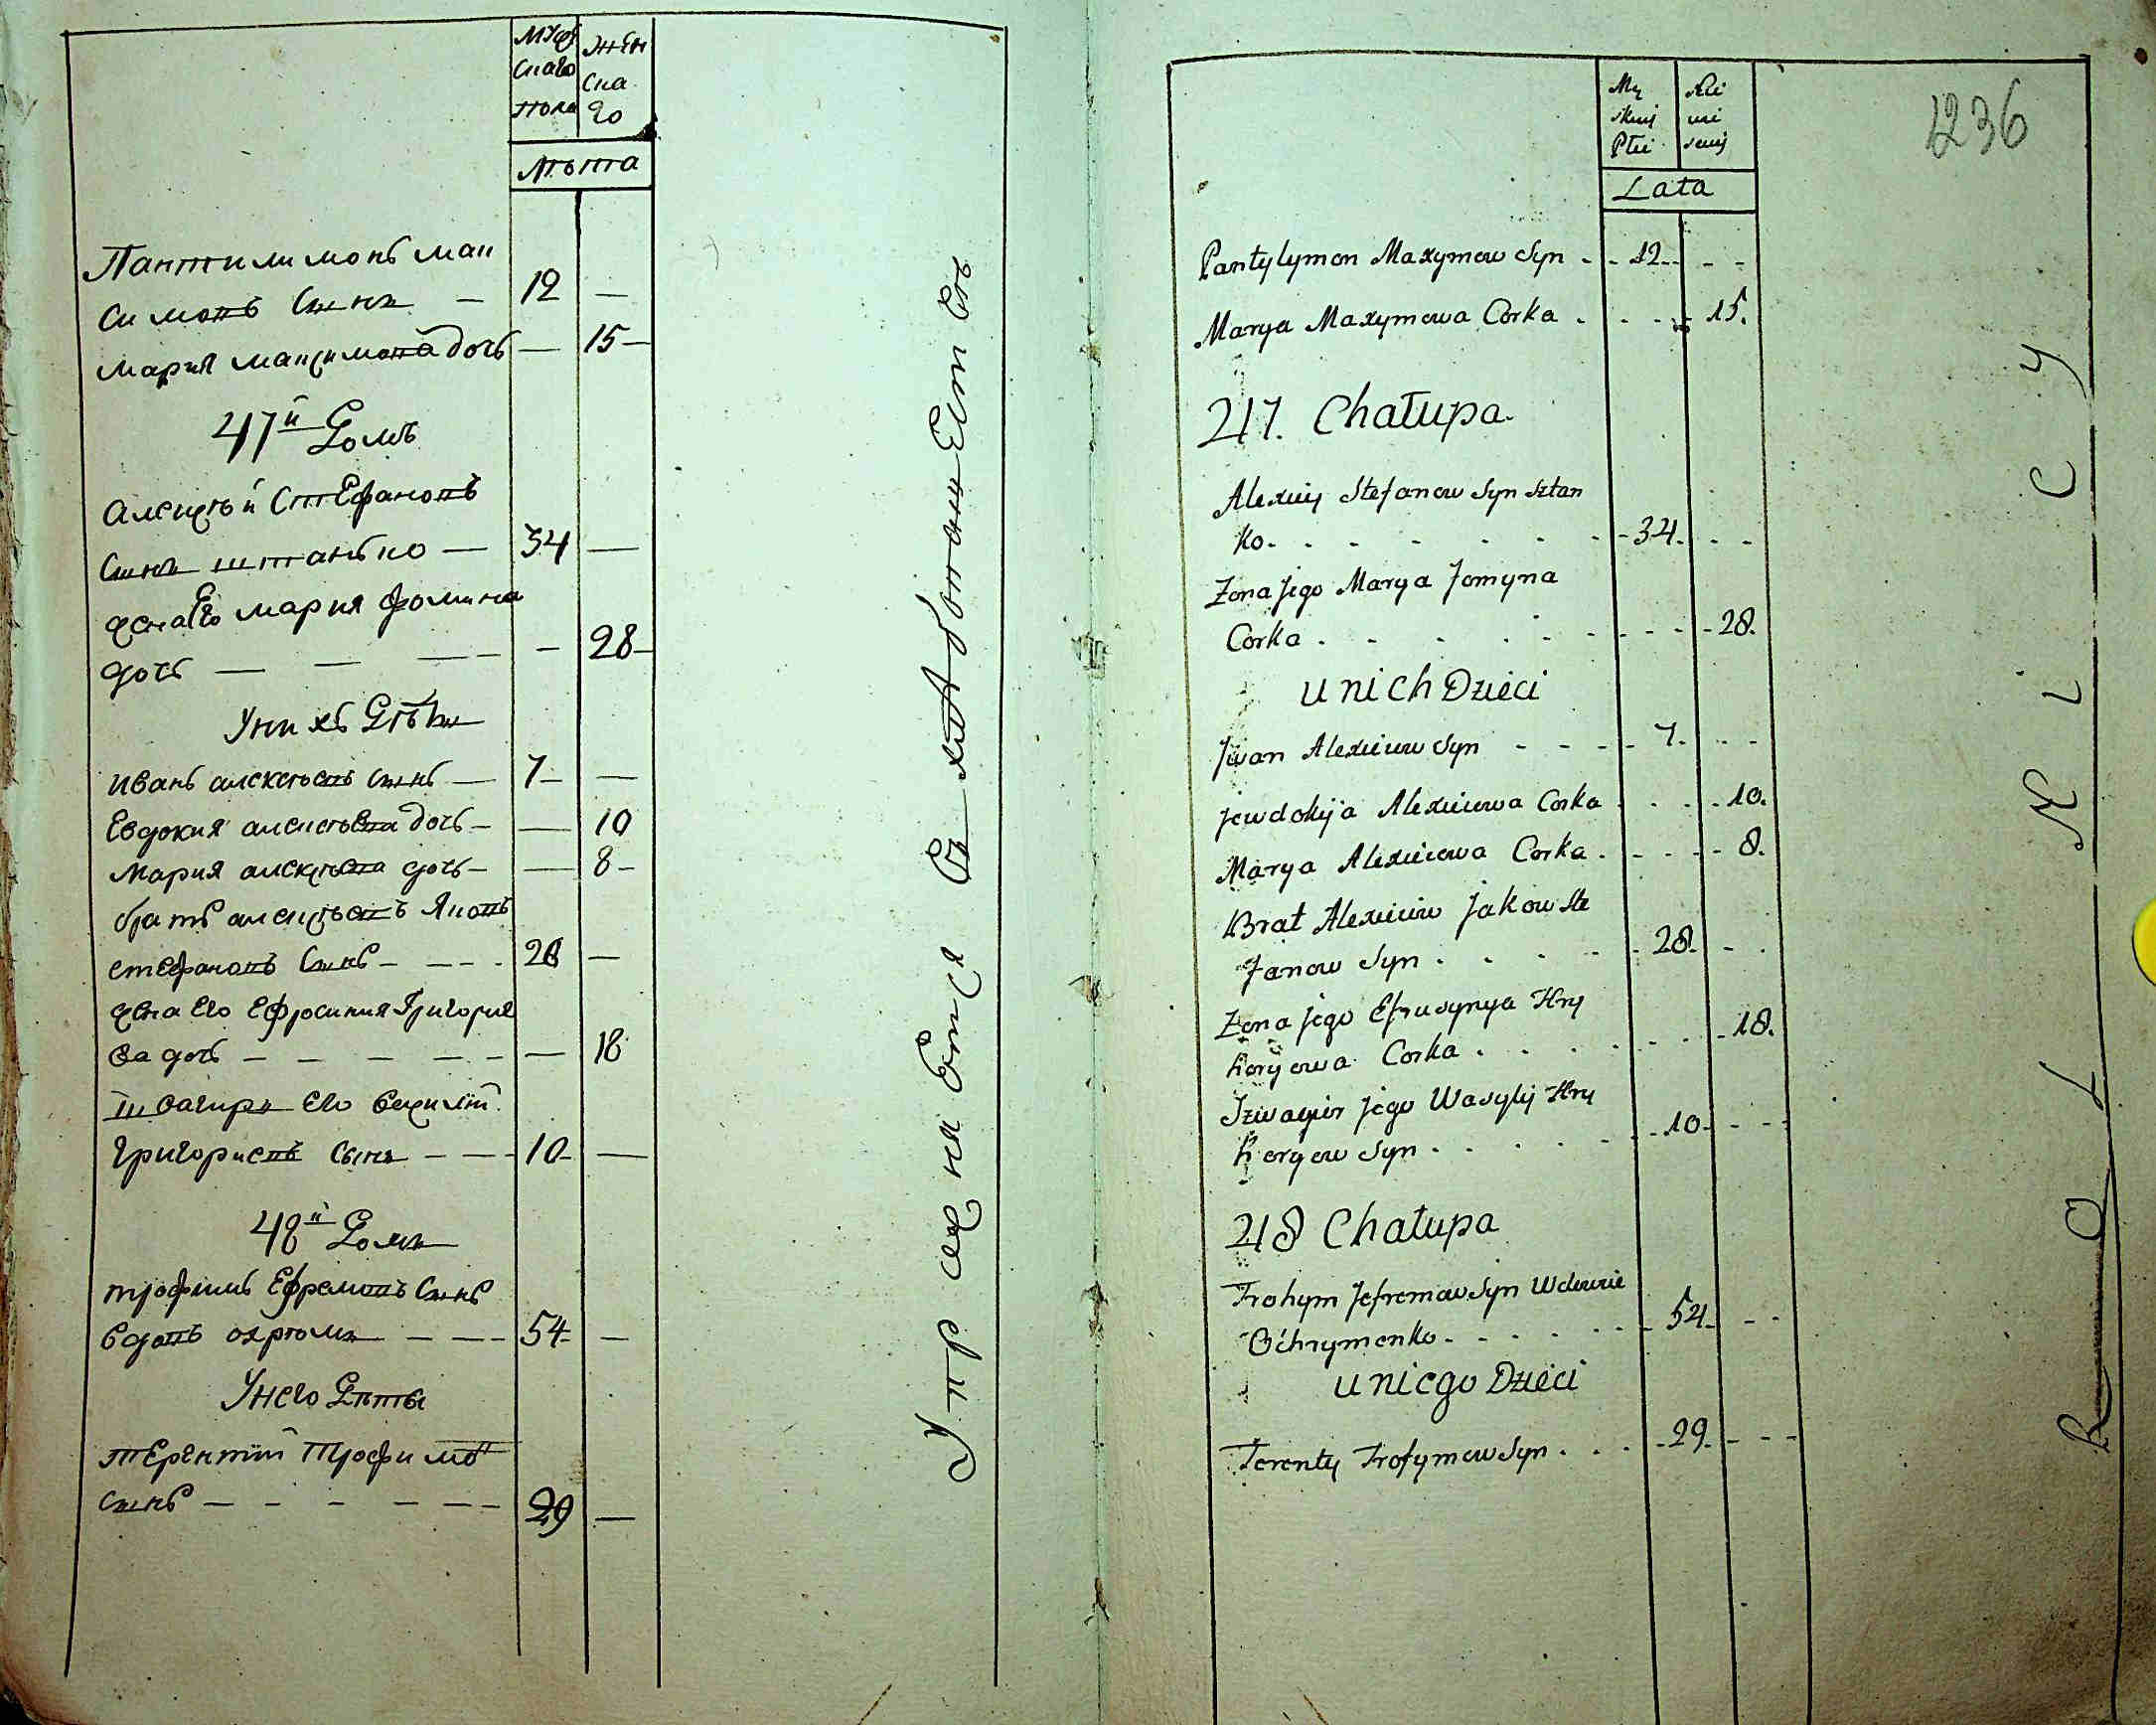 мужскаго пола
женскаго
лѣта
Пантилимонъ Мак
симовъ Сынъ — 12 —
Мария Максимова дочь — 15 —
47й Домъ
Алексѣй Стефановъ
Сынъ Штанько — 34 —
жена Его Мария Фомина
дочь — — — — 28 —
У нихъ Дѣти
Иванъ Алексѣевъ Сынъ — 7 — —
Евдокия Алексѣева дочь — — 10
Мария Алексѣева дочь — — 8 —
братъ Алексѣевъ Яковъ
Стефановъ Сынъ — — — 28 —
жена Его Ефросиния Григорие
ва дочь — — — — — 18
Швагиръ Его Василій
Григориевъ Сынъ — — — 10 — —
48й Домъ
Трофимъ Ефремовъ Сынъ
вдовъ — — — 54 — —
У него Дѣти
Терентій Трофимов
Сынъ — — — — — — 29 —
1236
Mę
skiej
Płci
Lata
Pantylymon Maxymow Syn . - 12 - - -
Marya Maxymowa Corka . . . - 15.
47. Chałupa.
Alexiey Stefanow Syn Sztan
ko. . - - - - - - 34. - -
Zona jego Marya Fomyna
Corka . - - . - - - - - 28.
u nich Dzieci
Jwan Alexiiew Syn - - - - 7. - -
Jewdokija Alexiiewa Corka . . . - 10.
Marya Alexiiewa Corka . - - - - 8.
Brat Alexiiew Jakow Ste
fanow Syn . . . . - 28. - .
Zona jego Efrusynya Hry
horyowa Corka . . . . . . - 18.
Szwagier jego Wasylij Hry
horyow Syn . . . . . - 10 - - - -
48 Chałupa
Trohym Jefremow Syn Wdowiec
Ochrymenko . - - . . - - 54. - -
u niego Dzieci
Terenty Trofymow Syn . . . - 29. - - -